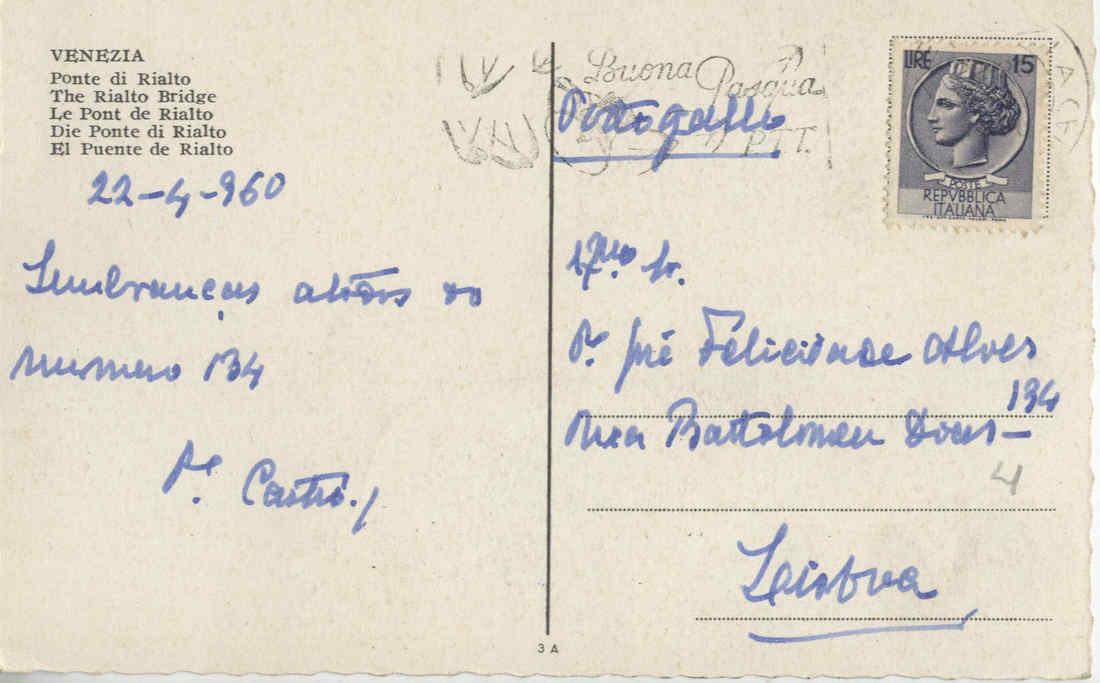 VENEZIA
Ponte di Rialto
The Rialto Bridge
Le Pont de Rialto
Die Ponte di Rialto
El Puente de Rialto
22-4-960
Lembranças a todos do
numero 134
Pe. Castro
3 A
Buona Pasqua
P.T.T.
LIRE 15
POSTE
REPVBBLICA
ITALIANA
Portogallo
Sr.
Pe. José Felicidade Alves
Rua Bartolomeu Dias - 134
4
Lisboa